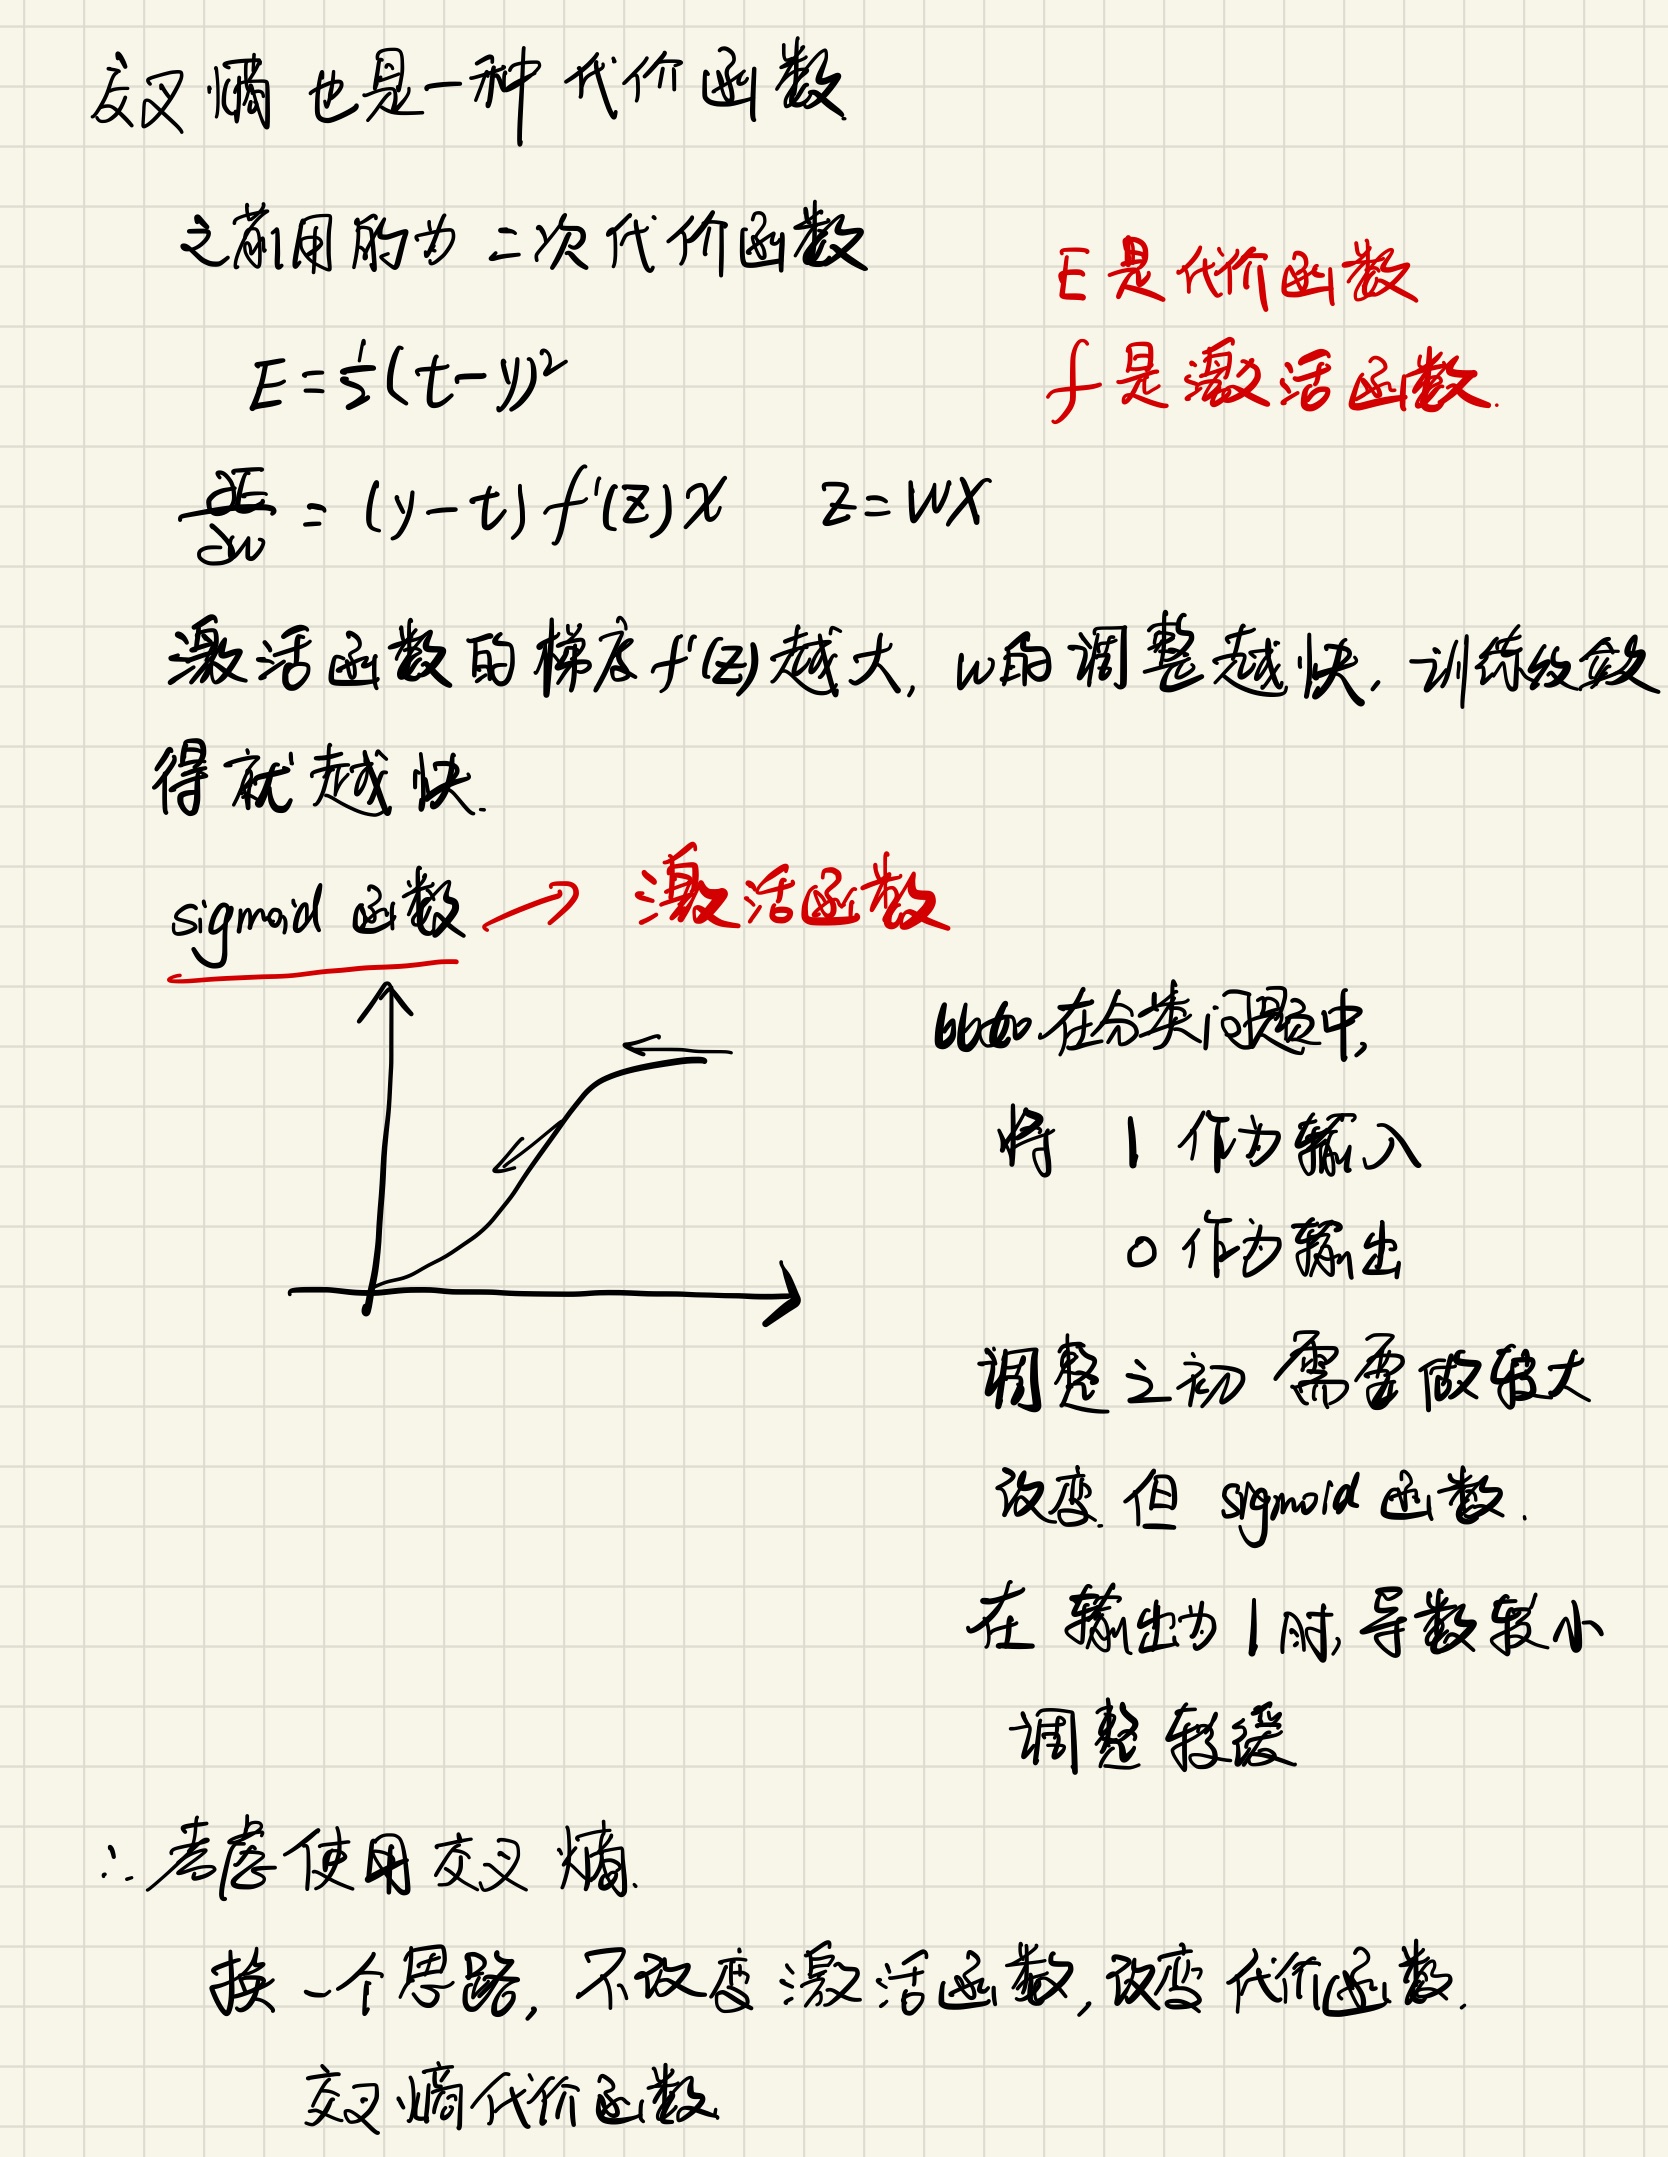 交叉熵也是一种代价函数
之前用的为二次代价函数
E是代价函数
E=½(t-y)²
f是激活函数.
∂E/∂w = (y-t)f'(z)x z=WX
激活函数的梯度f'(z)越大,w的调整越快,训练收敛
得就越快.
sigmoid函数→激活函数
比如在分类问题中,
将 1 作为输入
0 作为输出
调整之初需要做较大
改变.但 sigmoid 函数.
在输出为1时,导数较小
调整较缓
∴考虑使用交叉熵.
换一个思路,不改变激活函数,改变代价函数.
交叉熵代价函数